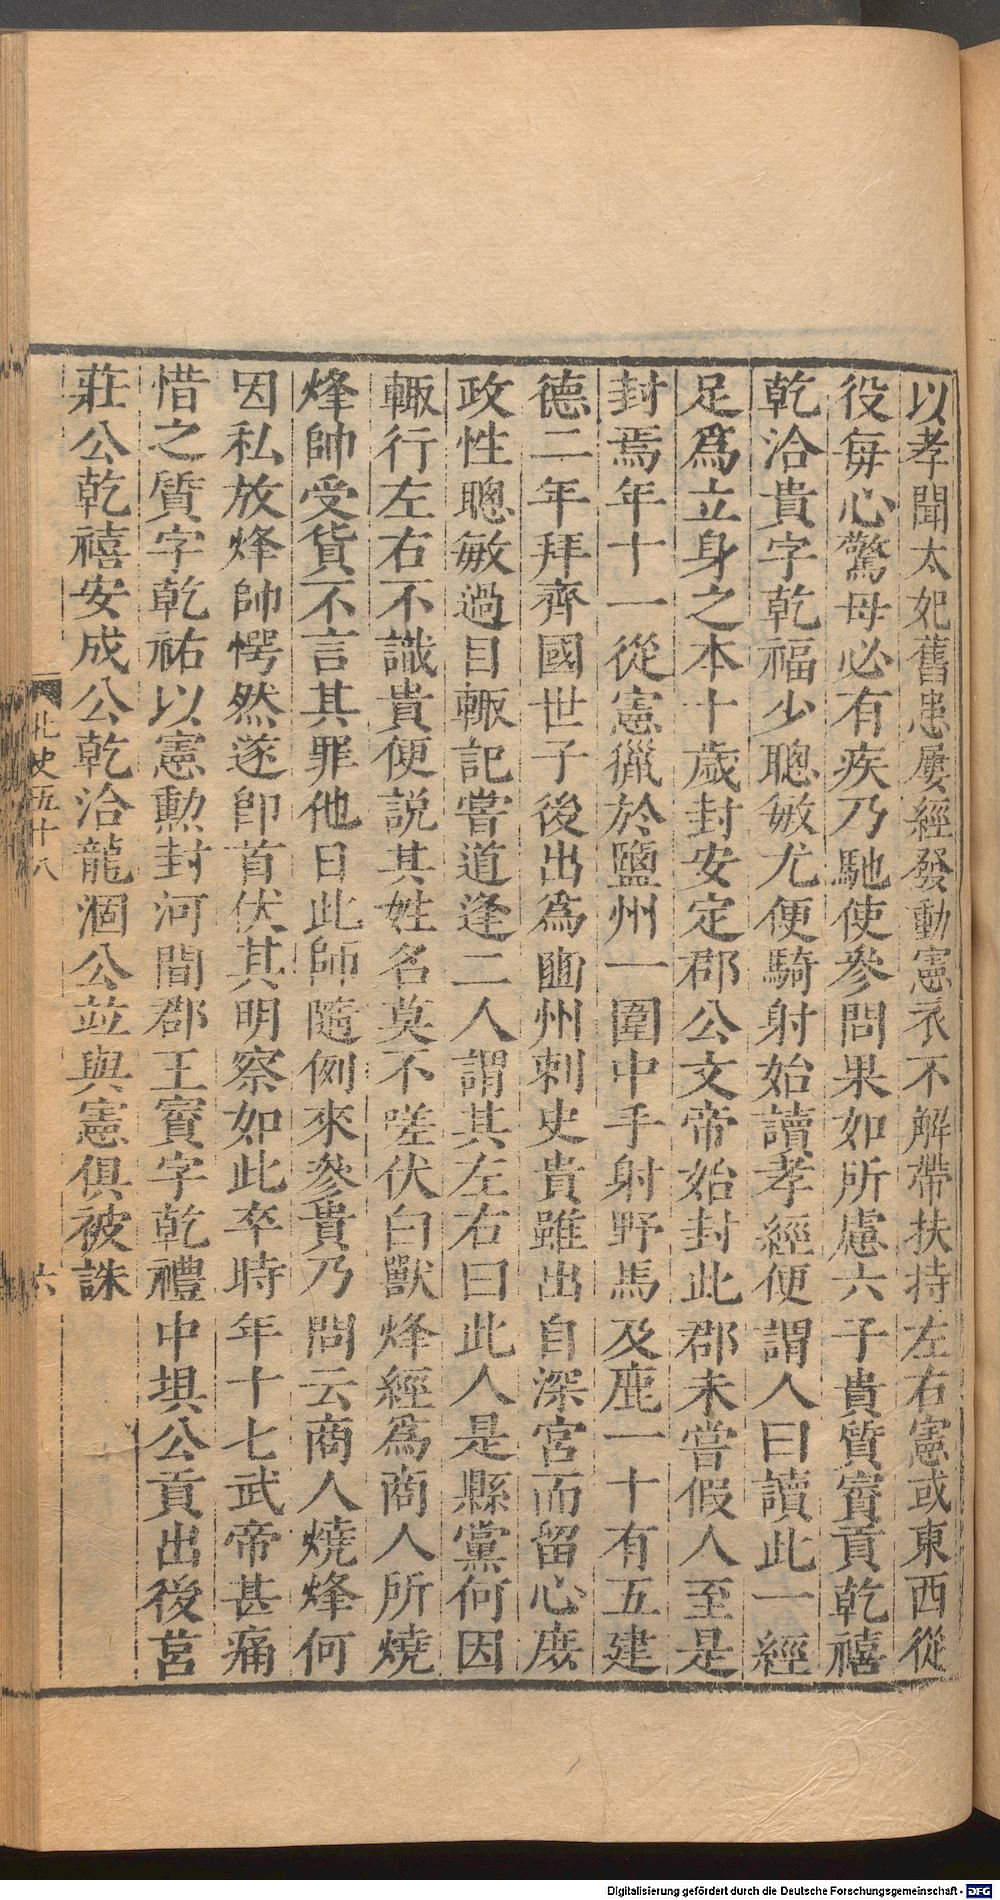 以孝聞太妃舊患屢經發動憲衣不解帶扶持左右憲或東西從
役每心驚母必有疾乃馳使參問果如所慮六子貴質賨貢乾禧
乾洽貴字乾福少聰敏尤便騎射始讀孝經便謂人曰讀此一經
足爲立身之本十歲封安定郡公文帝始封此郡未嘗假人至是
封焉年十一從憲獵於鹽州一圍中手射野馬及鹿一十有五建
德二年拜齊國世子後出爲豳州刺史貴雖出自深宮而留心庶
政性聰敏過目輙記嘗道逢二人謂其左右曰此人是縣黨何因
輙行左右不識貴便説其姓名莫不嗟伏白獸烽經爲商人所燒
烽帥受貨不言其罪他日此師隨例來參貴乃問云商人燒烽何
因私放烽帥愕然遂卽首伏其明察如此卒時年十七武帝甚痛
惜之質字乾祐以憲勲封河間郡王賨字乾禮中垻公貢出後莒
莊公乾禧安成公乾洽龍涸公竝與憲俱被誅
北史五十八
六
Digitalisierung gefördert durch die Deutsche Forschungsgemeinschaft - DFG